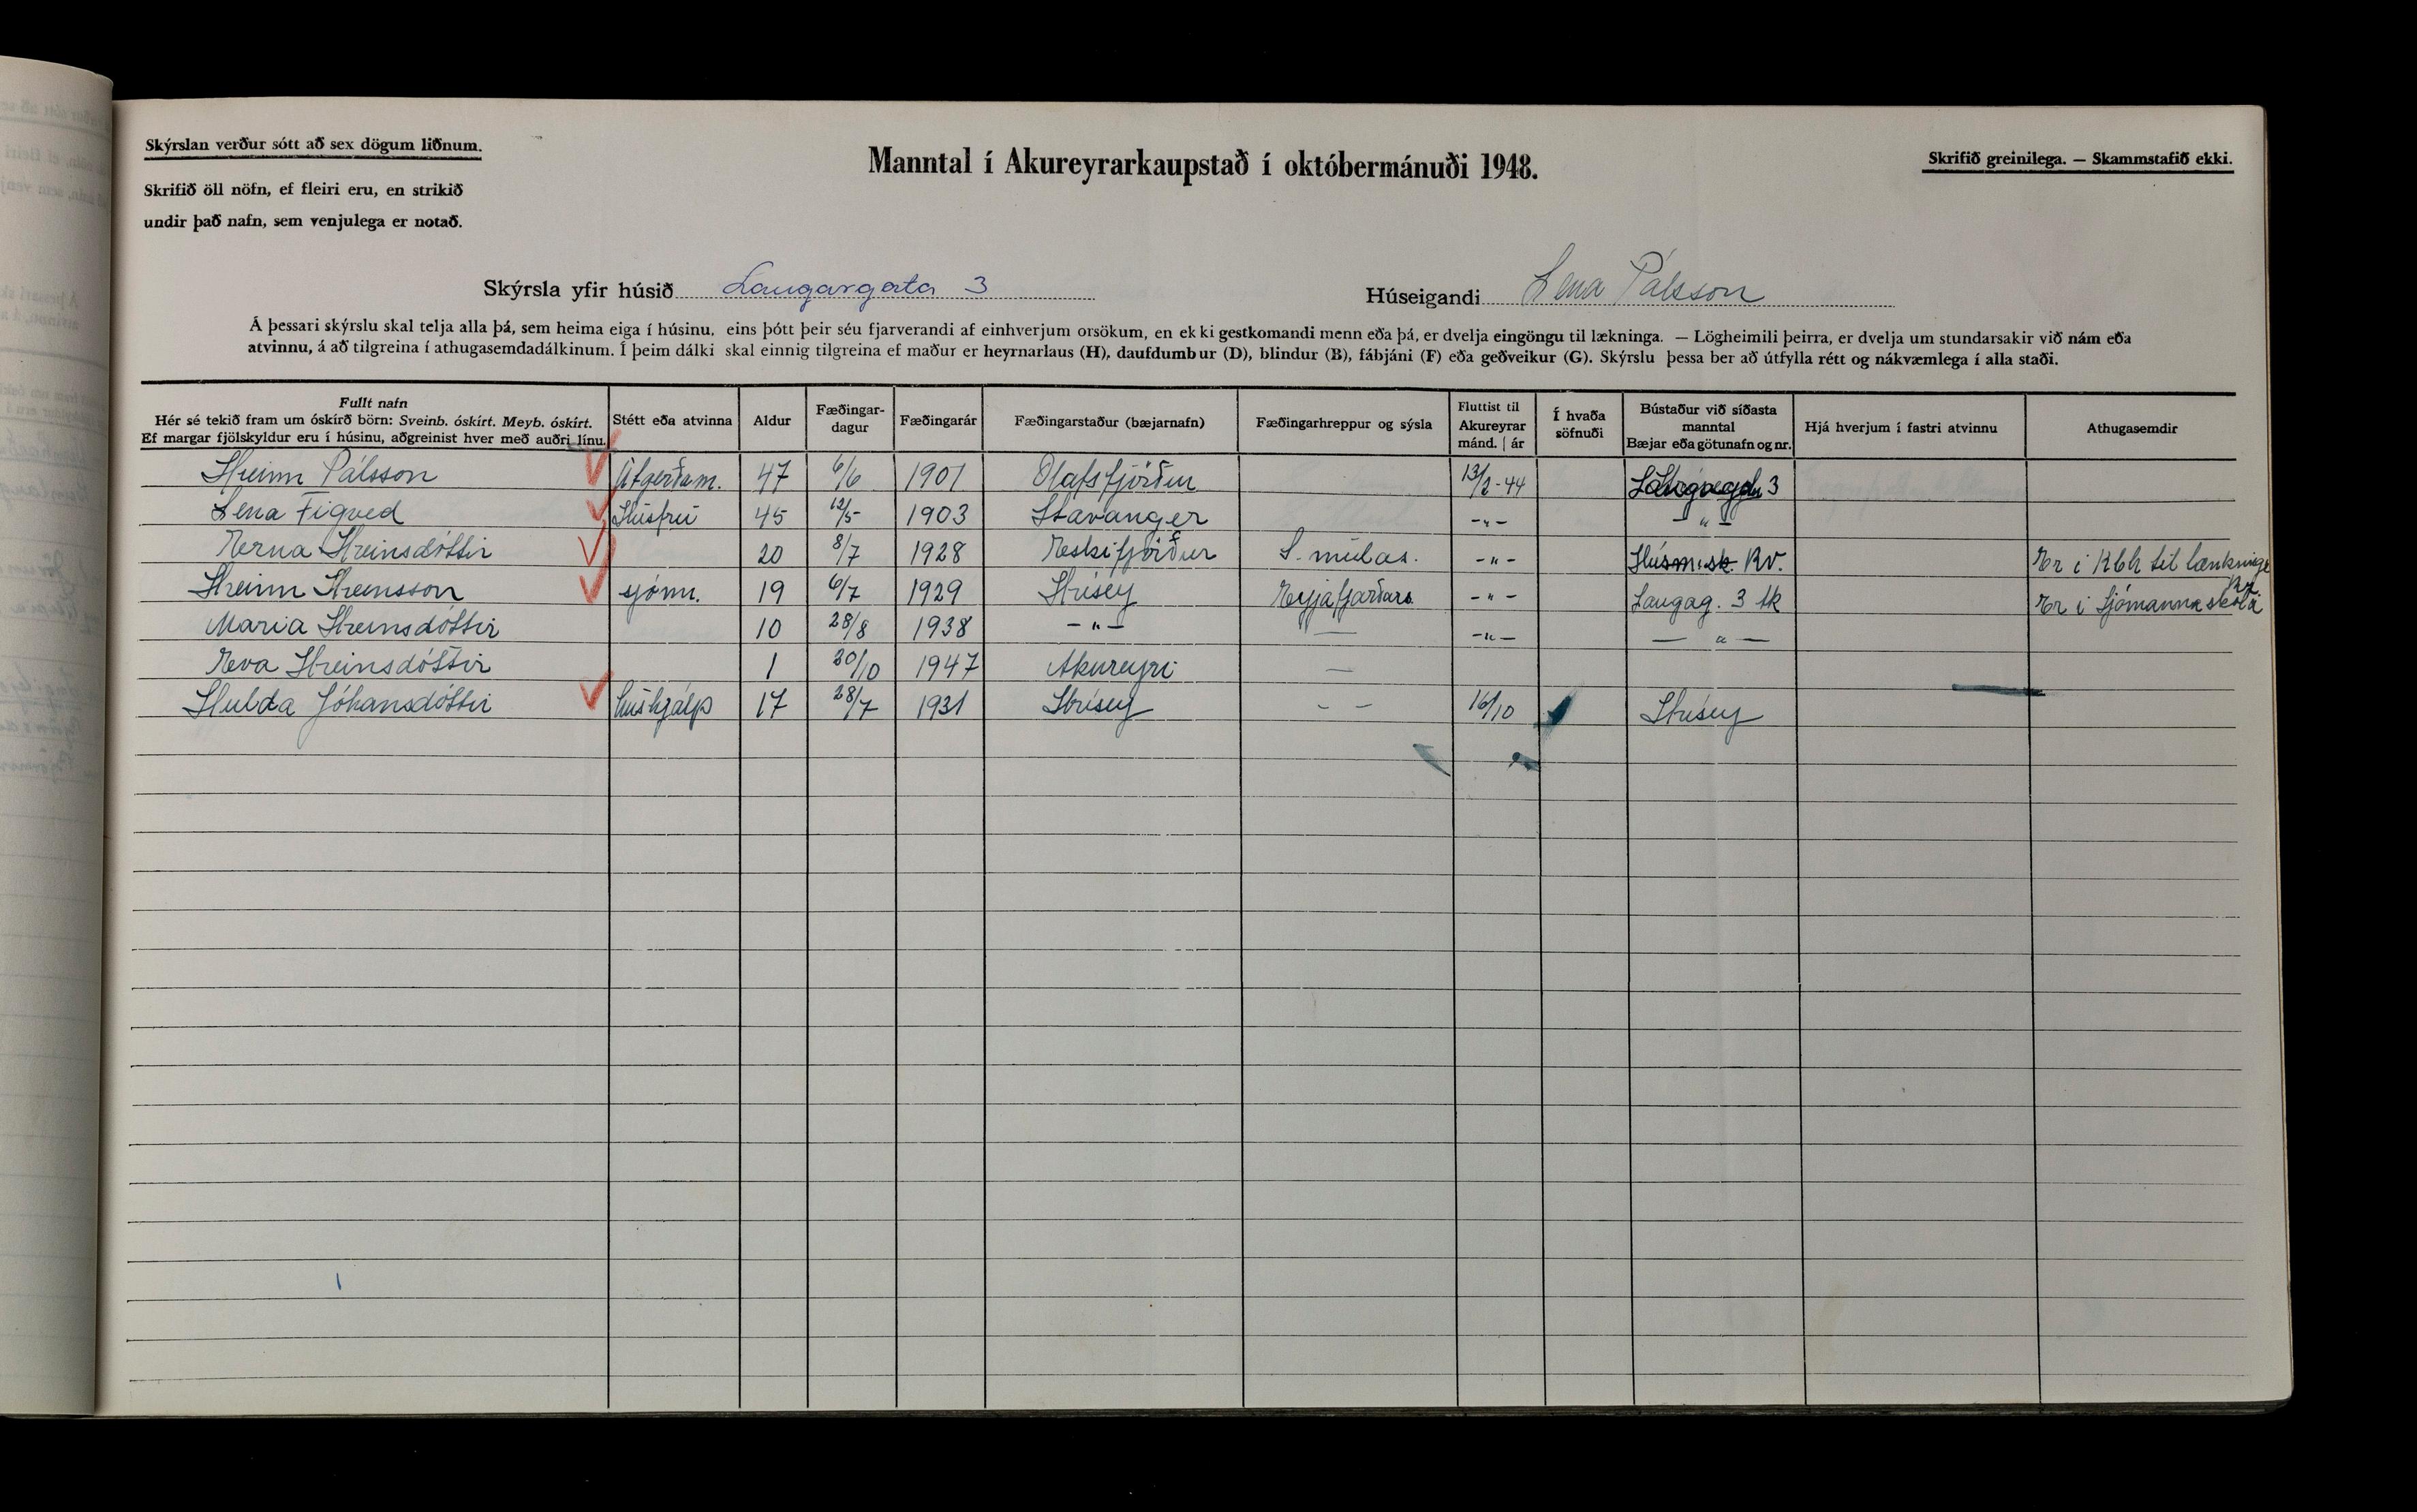 Skýrslan verður sótt að sex dögum liðnum.
Manntal í Akureyrarkaupstað í októbermánuði 1948.
Skrifið greinilega. — Skammstafið ekki.
Skrifið öll nöfn, ef fleiri eru, en strikið
undir það nafn, sem venjulega er notað.
Skýrsla yfir húsið Laugargata 3 Húseigandi Lena Pálsson
Á þessari skýrslu skal telja alla þá, sem heima eiga í húsinu, eins þótt þeir séu fjarverandi af einhverjum orsökum, en ekki gestkomandi menn eða þá, er dvelja eingöngu til lækninga. — Lögheimili þeirra, er dvelja um stundarsakir við nám eða
atvinnu, á að tilgreina í athugasemdadálkinum. Í þeim dálki skal einnig tilgreina ef maður er heyrnarlaus (H), daufdumbur (D), blindur (B), fábjáni (F) eða geðveikur (G). Skýrslu þessa ber að útfylla rétt og nákvæmlega í alla staði.
Fullt nafn
Hér sé tekið fram um óskírð börn: Sveinb. óskírt. Meyb. óskírt.
Ef margar fjölskyldur eru í húsinu, aðgreinist hver með auðri línu.
Stétt eða atvinna
Aldur
Fæðingar-
dagur
Fæðingarár
Fæðingarstaður (bæjarnafn)
Fæðingarhreppur og sýsla
Fluttist til
Akureyrar
mánd. | ár
Í hvaða
söfnuði
Bústaður við síðasta
manntal
Bæjar eða götunafn og nr.
Hjá hverjum í fastri atvinnu
Athugasemdir
Hreinn Pálsson Útgerðam. 47 6/6 1901 Ólafsfjörður 13/2-44 3
Lena Figved Húsfrú 45 12/5 1903 Stavanger -"- -"-
Erna Hreinsdóttir 20 8/7 1928 Eskifjörður S. múlas. -"- Húsm.sk. Rv. Er í Kbh til lækninga
Hreinn Hreinsson sjóm. 19 6/7 1929 Hrísey Eyjafjarðars -"- Laugag. 3 Ak Er í Sjómannaskóla Rv.
Maria Hreinsdóttir 10 28/8 1938 -"- — -"- — " —
Eva Hreinsdóttir 1 20/10 1947 Akureyri —
Hulda Jóhansdóttir húshjálp 17 28/7 1931 Hrísey - - 16/10 Hrísey